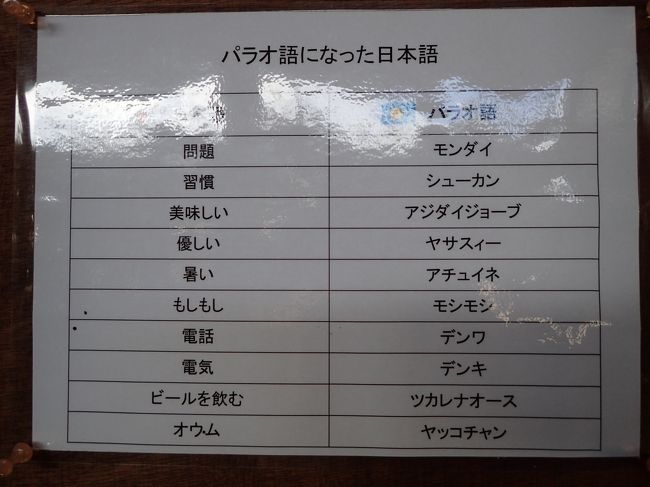 パラオ語になった日本語
パラオ語
問題 モンダイ
習慣 シューカン
美味しい アジダイジョーブ
優しい ヤサスィー
暑い アチュイネ
もしもし モシモシ
電話 デンワ
電気 デンキ
ビールを飲む ツカレナオース
オウム ヤッコチャン